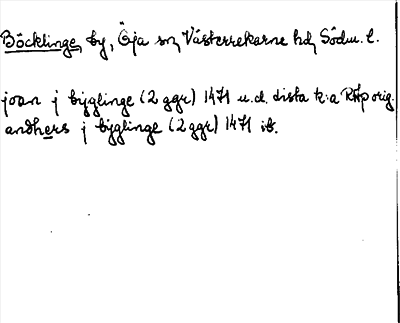 Böcklinge, by, Öja sn, Västerrekarne hd, Södm. l.
joan j byglinge (2 ggr) 1471 u.d. dista k:a RAp orig.
andhers j byglinge (2 ggr) 1471 ib.